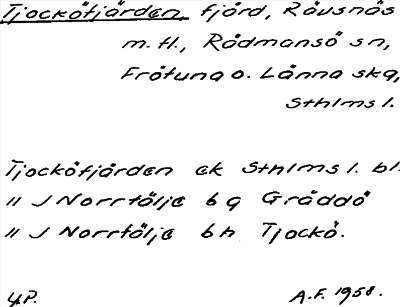 Tjocköfjärden, fjärd, Rävsnäs
m. fl., Rådmansö sn,
Frötuna o. Länna skg,
Sthlms l.
Tjocköfjärden ek Sthlms l. bl.
" J Norrtälje bg Gräddö
" J Norrtälje bh Tjockö.
4P.
A.F. 1958.